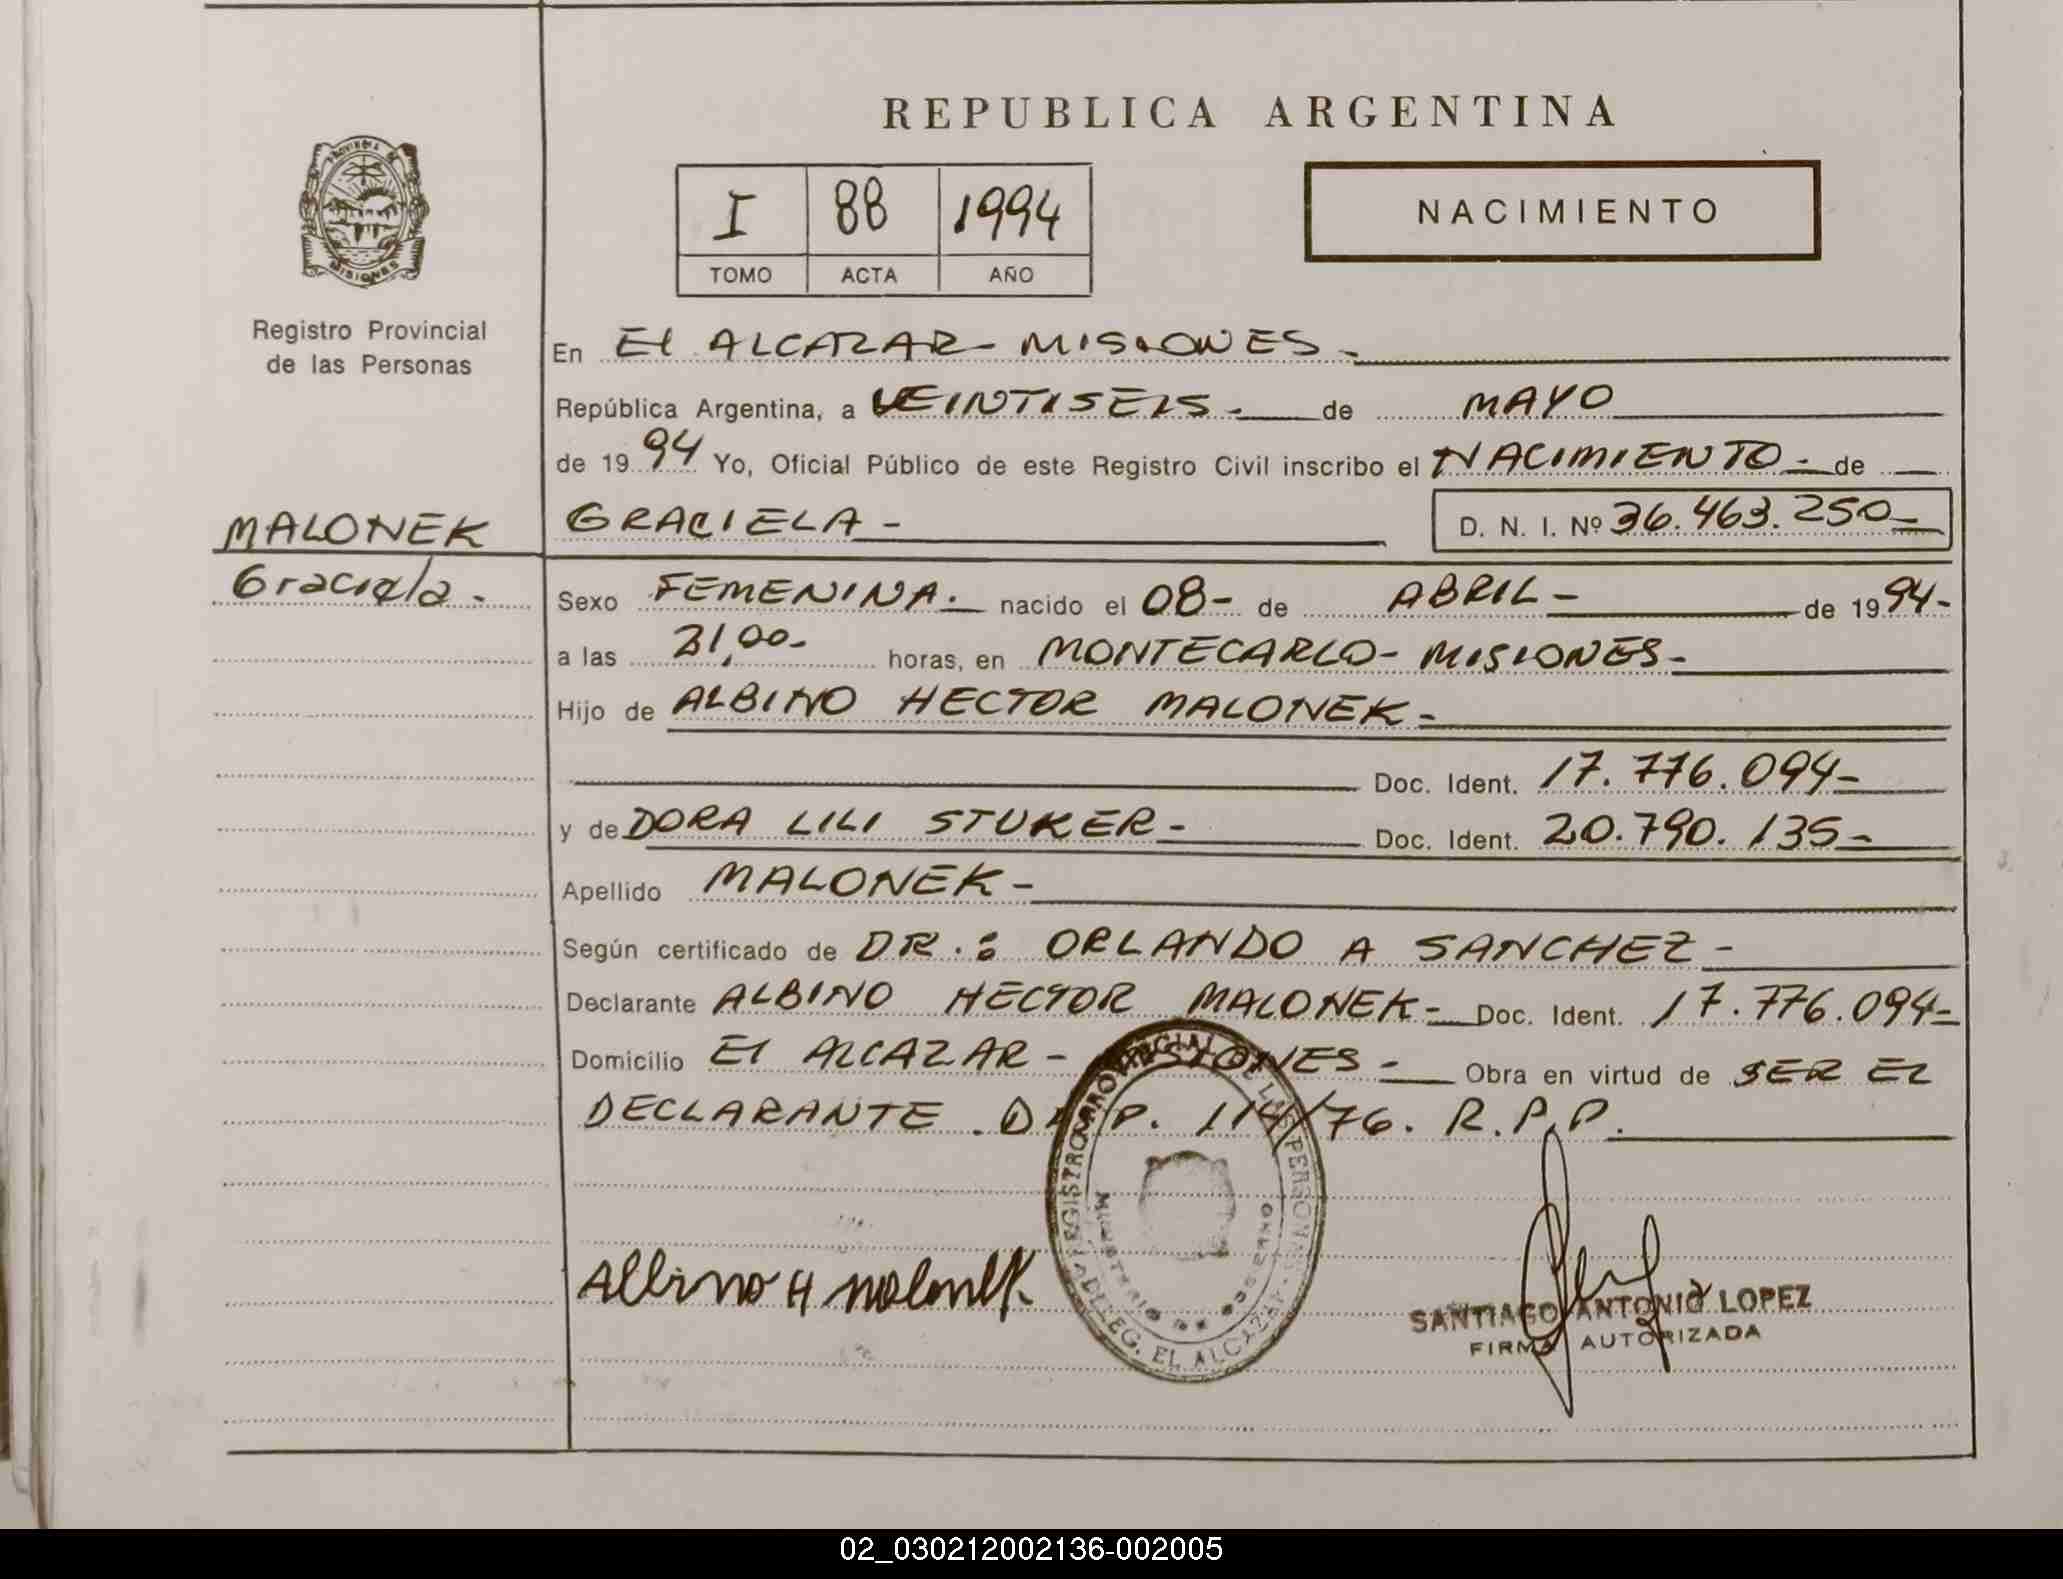 REPUBLICA ARGENTINA
PROVINCIA DE
MISIONES
I 88 1994
TOMO ACTA AÑO
NACIMIENTO
Registro Provincial
de las Personas
En El ALCAZAR - MISIONES -
República Argentina, a VEINTISEIS - de MAYO
de 1994 Yo, Oficial Público de este Registro Civil inscribo el NACIMIENTO - de
MALONEK
Graciela -
GRACIELA - D. N. I. Nº 36.463.250 -
Sexo FEMENINA. nacido el 08 - de ABRIL - de 1994 -
a las 21,00 - horas, en MONTECARLO - MISIONES -
Hijo de ALBINO HECTOR MALONEK -
Doc. Ident. 17.776.094 -
y de DORA LILI STUKER - Doc. Ident. 20.790.135 -
Apellido MALONEK -
Según certificado de DR.: ORLANDO A SANCHEZ -
Declarante ALBINO HECTOR MALONEK - Doc. Ident. 17.776.094 -
Domicilio El ALCAZAR - MISIONES - Obra en virtud de SER EL
DECLARANTE. P. 114/76. R.P.P.
REGISTRO PROVINCIAL DE LAS PERSONAS
MINISTERIO DE GOBIERNO
DELEG. EL ALCAZAR
Albino H Malonek
SANTIAGO ANTONIO LOPEZ
FIRMA AUTORIZADA
02_030212002136-002005